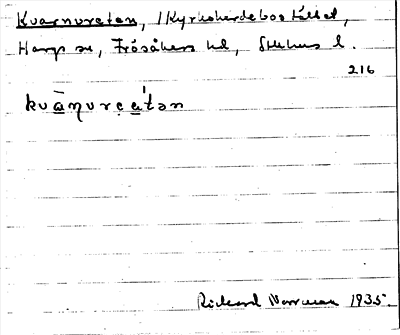 Kvarnvreten, / Kyrkoherdebostället,
Harg sn, Frösåkers hd, Sthlms l.
216
kvàṇvrẹa´tən
Rickard Norrman 1935.